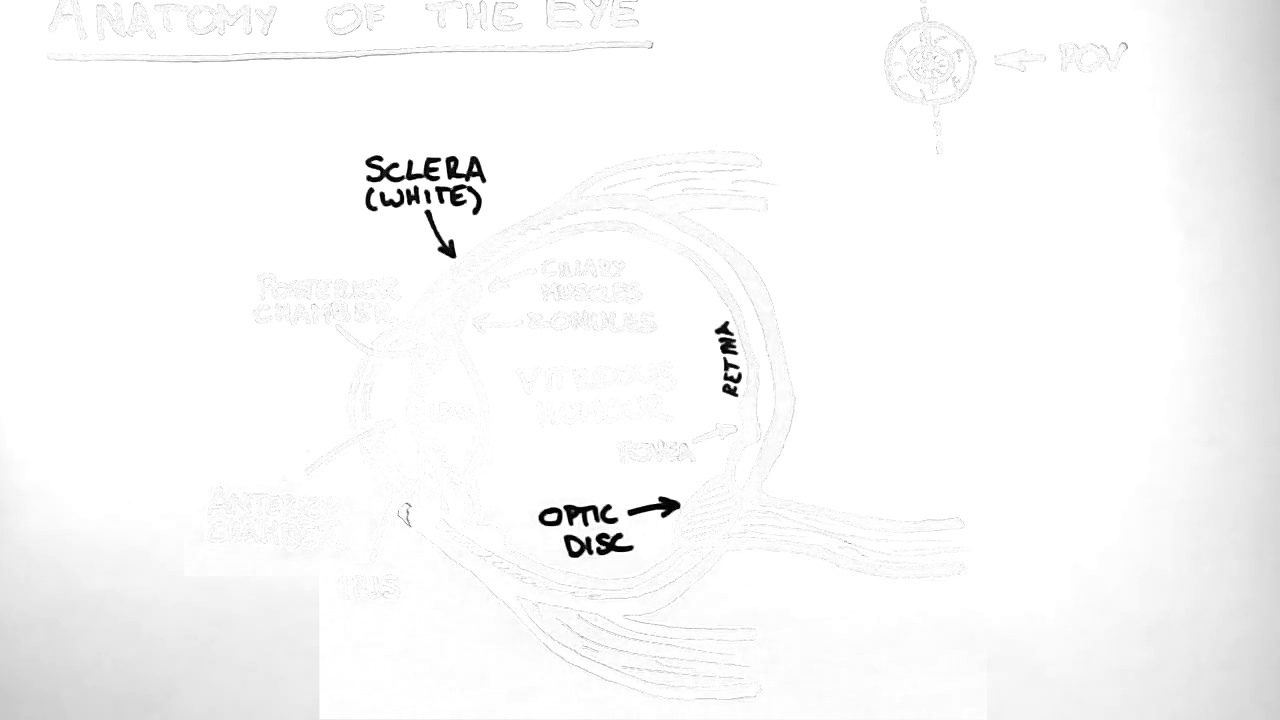 ANATOMY OF THE EYE
POV
SCLERA
(WHITE)
POSTERIOR
CHAMBER
CILIARY
MUSCLES
ZONULES
RETINA
VITREOUS
HUMOUR
LENS
FOVEA
ANTERIOR
CHAMBER
OPTIC
DISC
IRIS